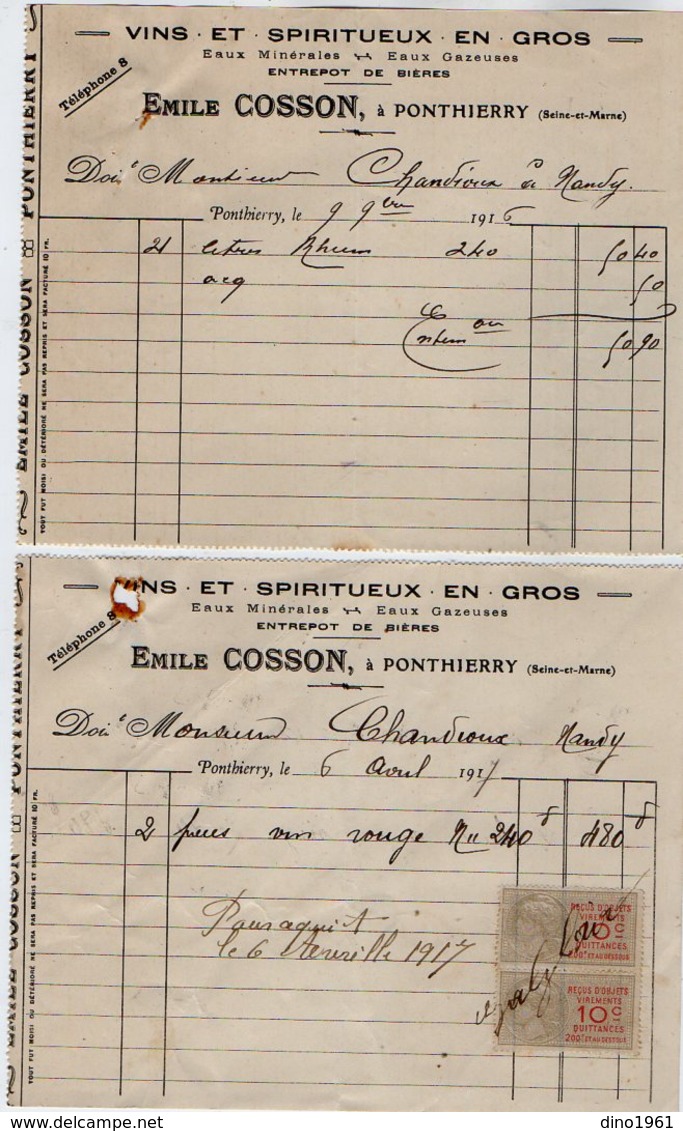 VINS · ET · SPIRITUEUX · EN · GROS
Eaux Minérales Eaux Gazeuses
ENTREPOT DE BIÈRES
Téléphone 8
EMILE COSSON, à PONTHIERRY (Seine-et-Marne)
Doit Monsieur Chandioux à Nandy.
Ponthierry, le 9 9bre 1916
21 litres Rhum 240 50 40
acq 50
50 90
EMILE COSSON 8 PONTHIERRY
TOUT FUT MOISI OU DÉTÉRIORÉ NE SERA PAS REPRIS ET SERA FACTURÉ 10 FR.
VINS · ET · SPIRITUEUX · EN · GROS
Eaux Minérales Eaux Gazeuses
ENTREPOT DE BIÈRES
Téléphone 8
EMILE COSSON, à PONTHIERRY (Seine-et-Marne)
Doit Monsieur Chandioux Nandy
Ponthierry, le 6 Avril 1917
2 pieces vin rouge Nu 240 f 480 f
Pour aquit
le 6 Avrille 1917
REÇUS D'OBJETS
VIREMENTS
10c
QUITTANCES
200f ET AU DESSOUS
REÇUS D'OBJETS
VIREMENTS
10c
QUITTANCES
200f ET AU DESSOUS
EMILE COSSON 8 PONTHIERRY
TOUT FUT MOISI OU DÉTÉRIORÉ NE SERA PAS REPRIS ET SERA FACTURÉ 10 FR.
delcampe.net
dino1961